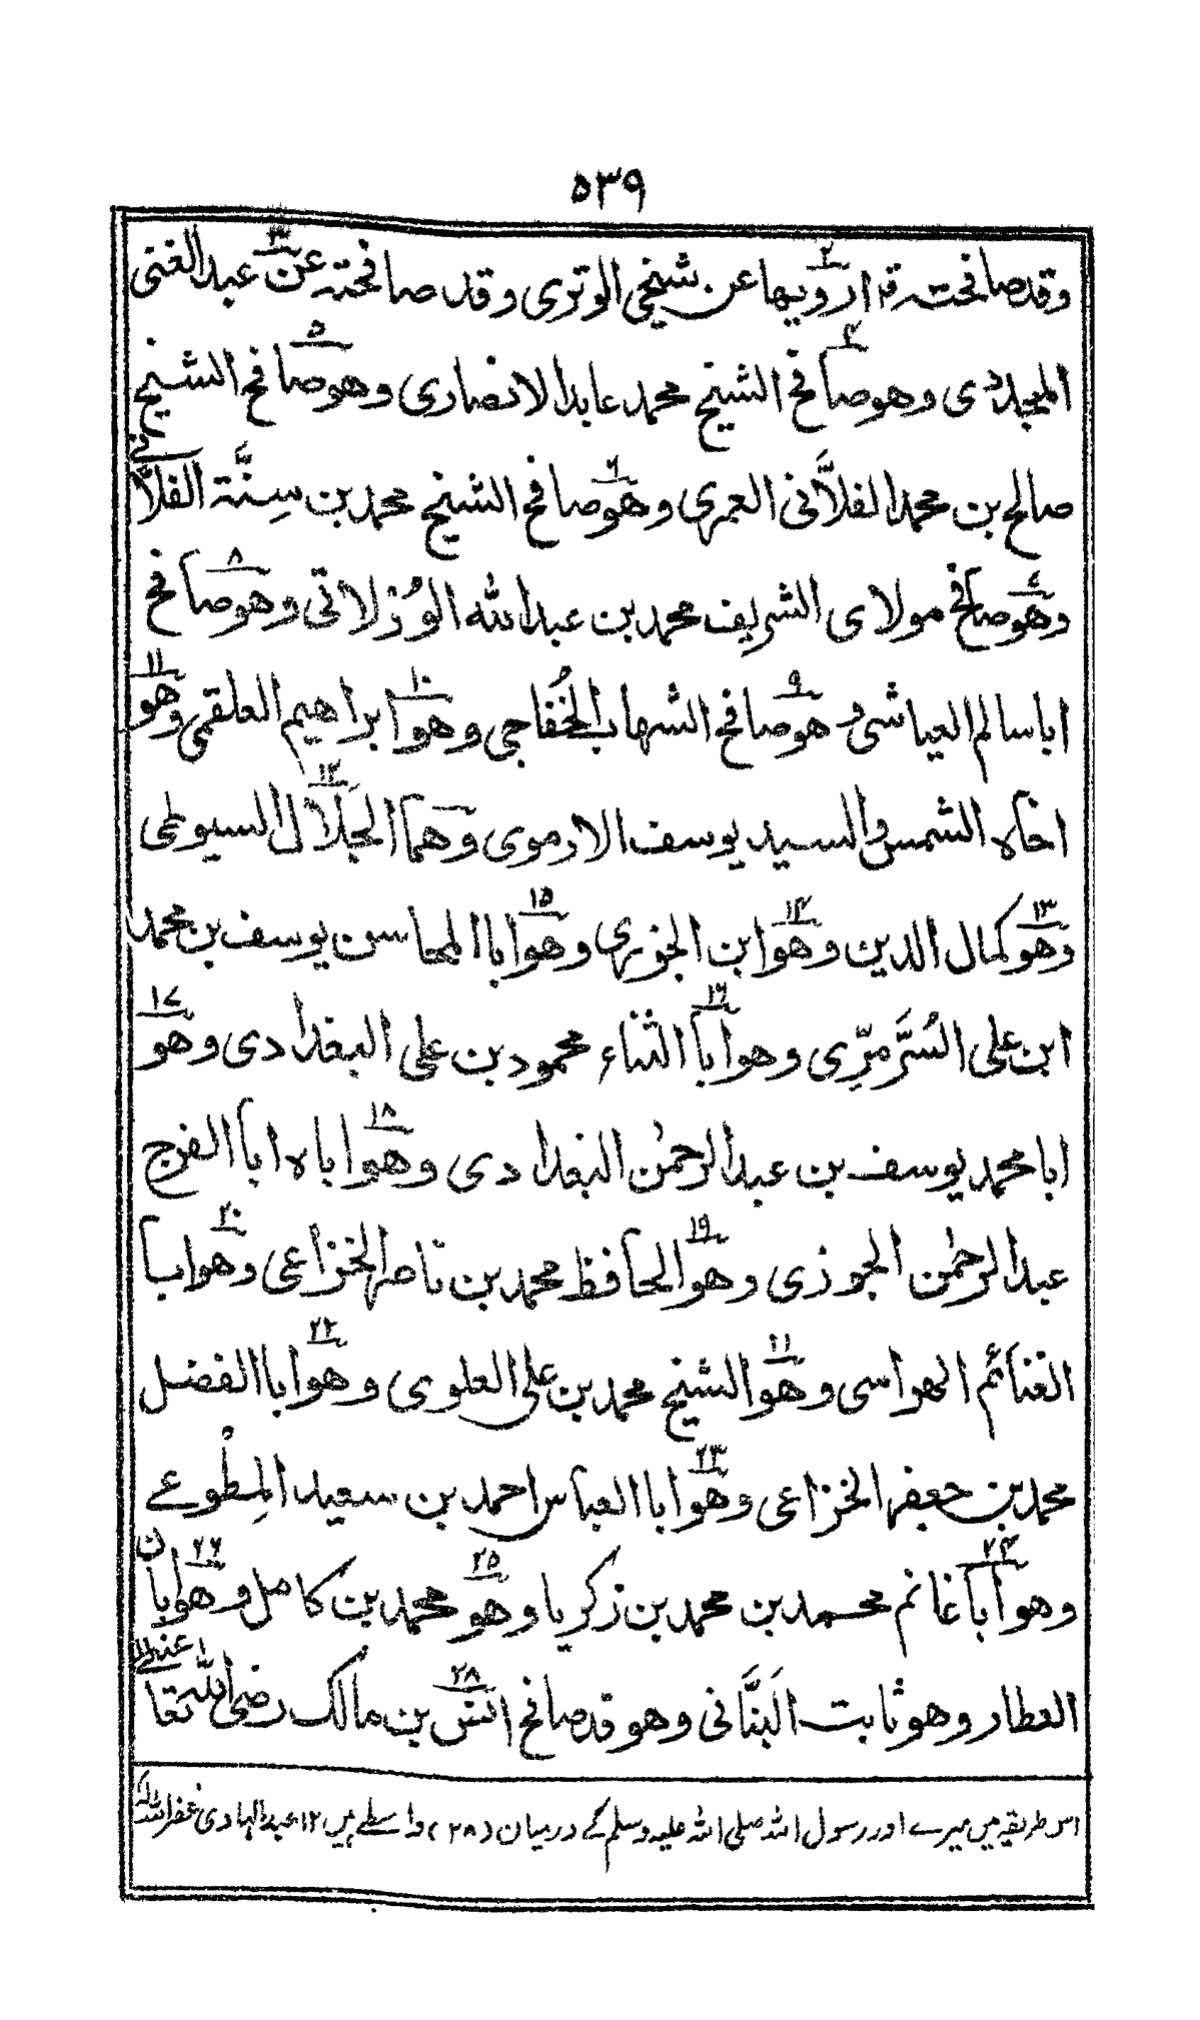 ٥٣٩
وقد صافحته ق ارويها عن شيخي الوتري وقد صافحته عن عبد الغني
المجددي وهو صافح الشيخ محمد عابد الانصاري وهو صافح الشيخ
صالح بن محمد الفلاَّني العمري وهو صافح الشيخ محمد بن سِنَّة الفلاَّني
وهو صافح مولاي الشريف محمد بن عبد الله الوُزلاتي وهو صافح
ابا سالم العياشي وهو صافح الشهاب الخُفاجي وهو ابراهيم العلقمي وهو
اخاه الشمس والسيد يوسف الارموي وهما الجلال السيوطي
وهو كمال الدين وهو ابن الجزري وهو ابا المحاسن يوسف بن محمد
ابن علي السُّرَّمرِّي وهو ابا الثناء محمود بن علي البغدادي وهو
ابا محمد يوسف بن عبد الرحمٰن البغدادي وهو اباه ابا الفرج
عبد الرحمٰن الجوزي وهو الحافظ محمد بن ناصر الخزاعي وهو ابا
الغنائم الهواسي وهو الشيخ محمد بن علي العلوي وهو ابا الفضل
محمد بن جعفر الخزاعي وهو ابا العباس احمد بن سعيد المِطْوعے
وهو ابا غانم محمد بن محمد بن زكريا وهو محمد بن كامل وهو ابان
العطار وهو ثابت البَنَّاني وهو قد صافح انس بن مالك رضي الله تعالى عنه
اس طریقہ میں میرے اور رسول اللہ صلی اللہ علیہ وسلم کے درمیان (٢٨) واسطے ہیں ١٢ عبد الہادی غفر اللہ لہ